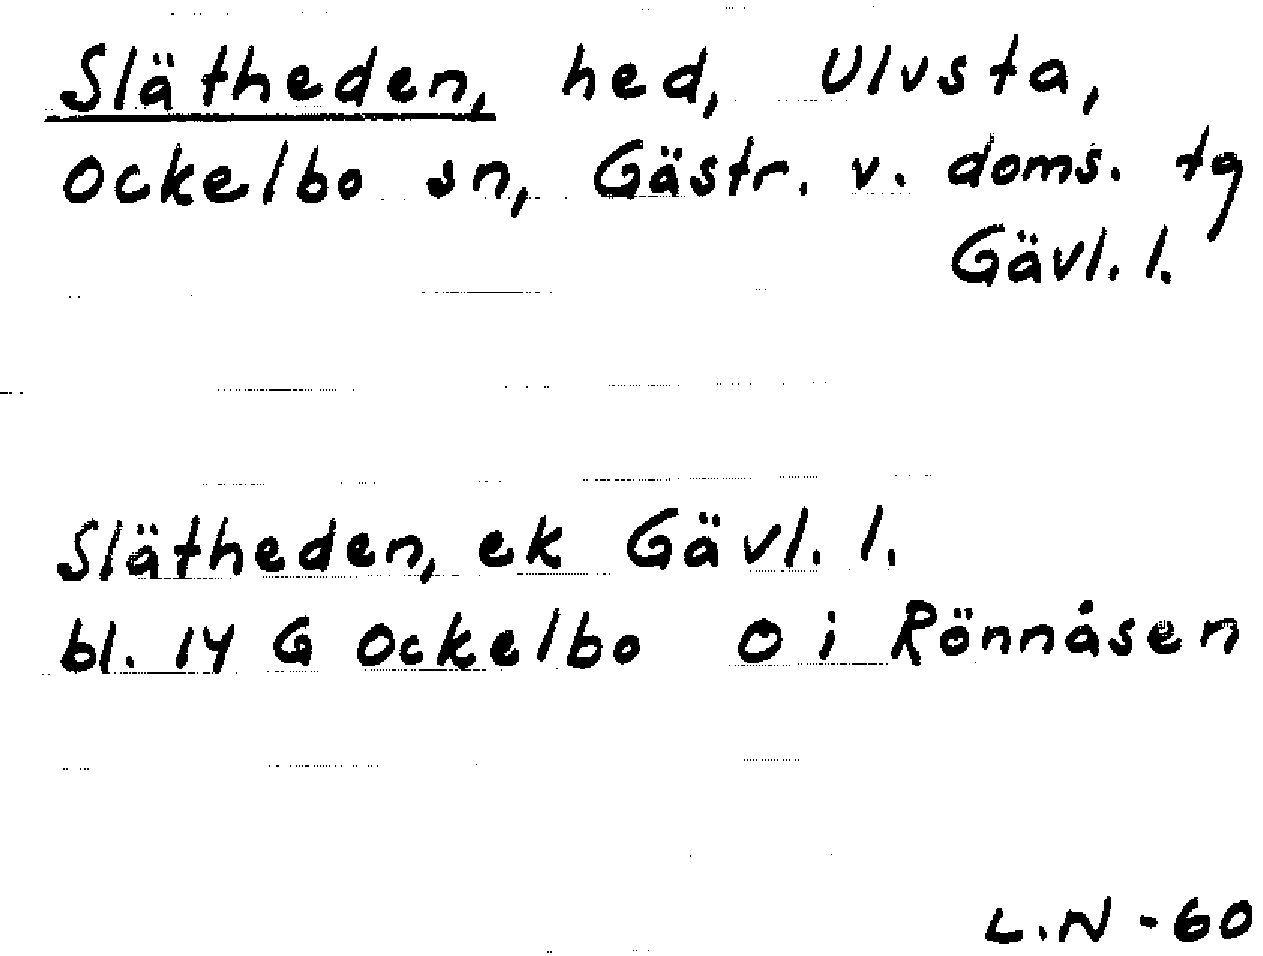 Slätheden, hed, Ulvsta,
Ockelbo sn, Gästr. v. doms. tg
Gävl. l.
Slätheden, ek Gävl. l.
bl. 14 G Ockelbo O i Rönnåsen
L.N - 60